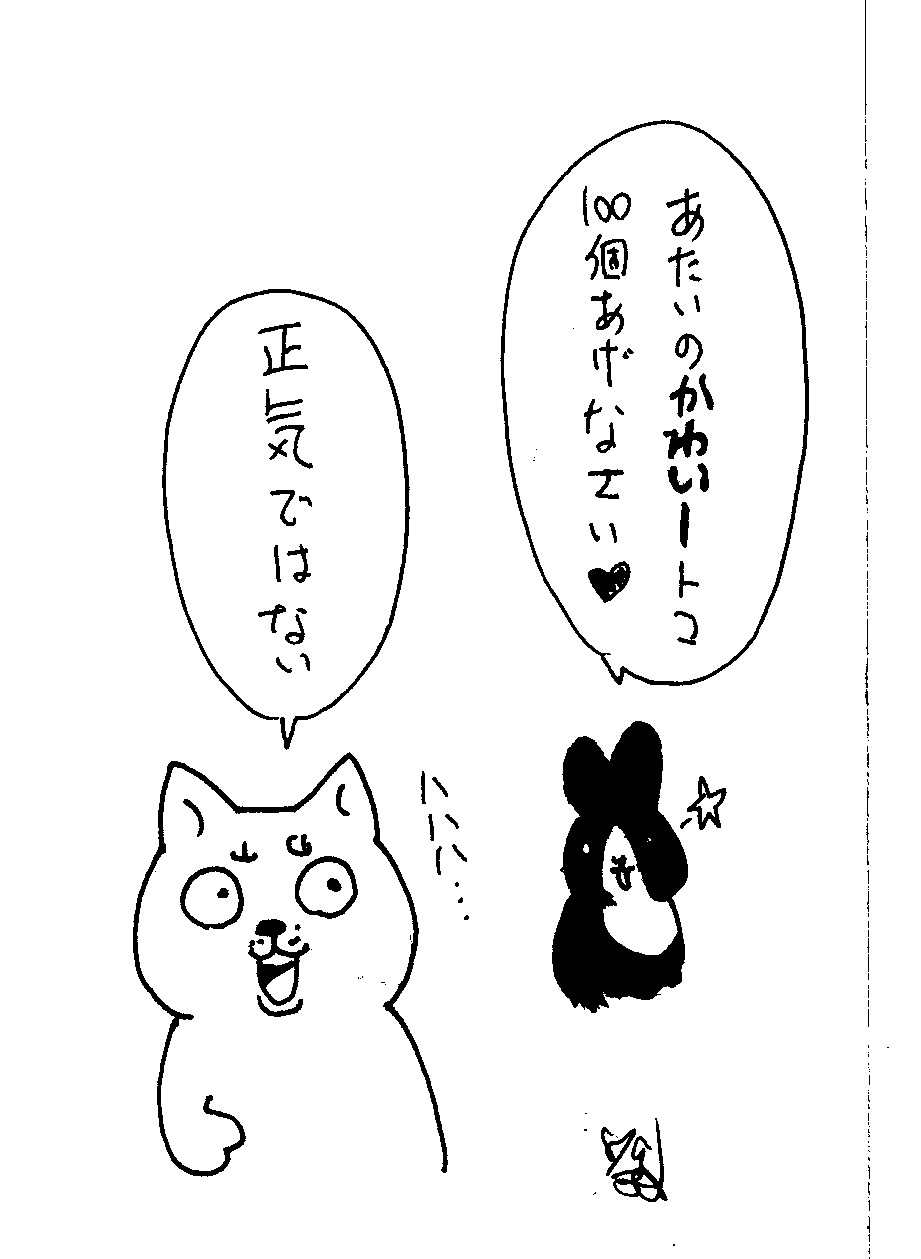 あたいのかわいートコ
100個あげなさい♥
正気ではない
ハハハ…